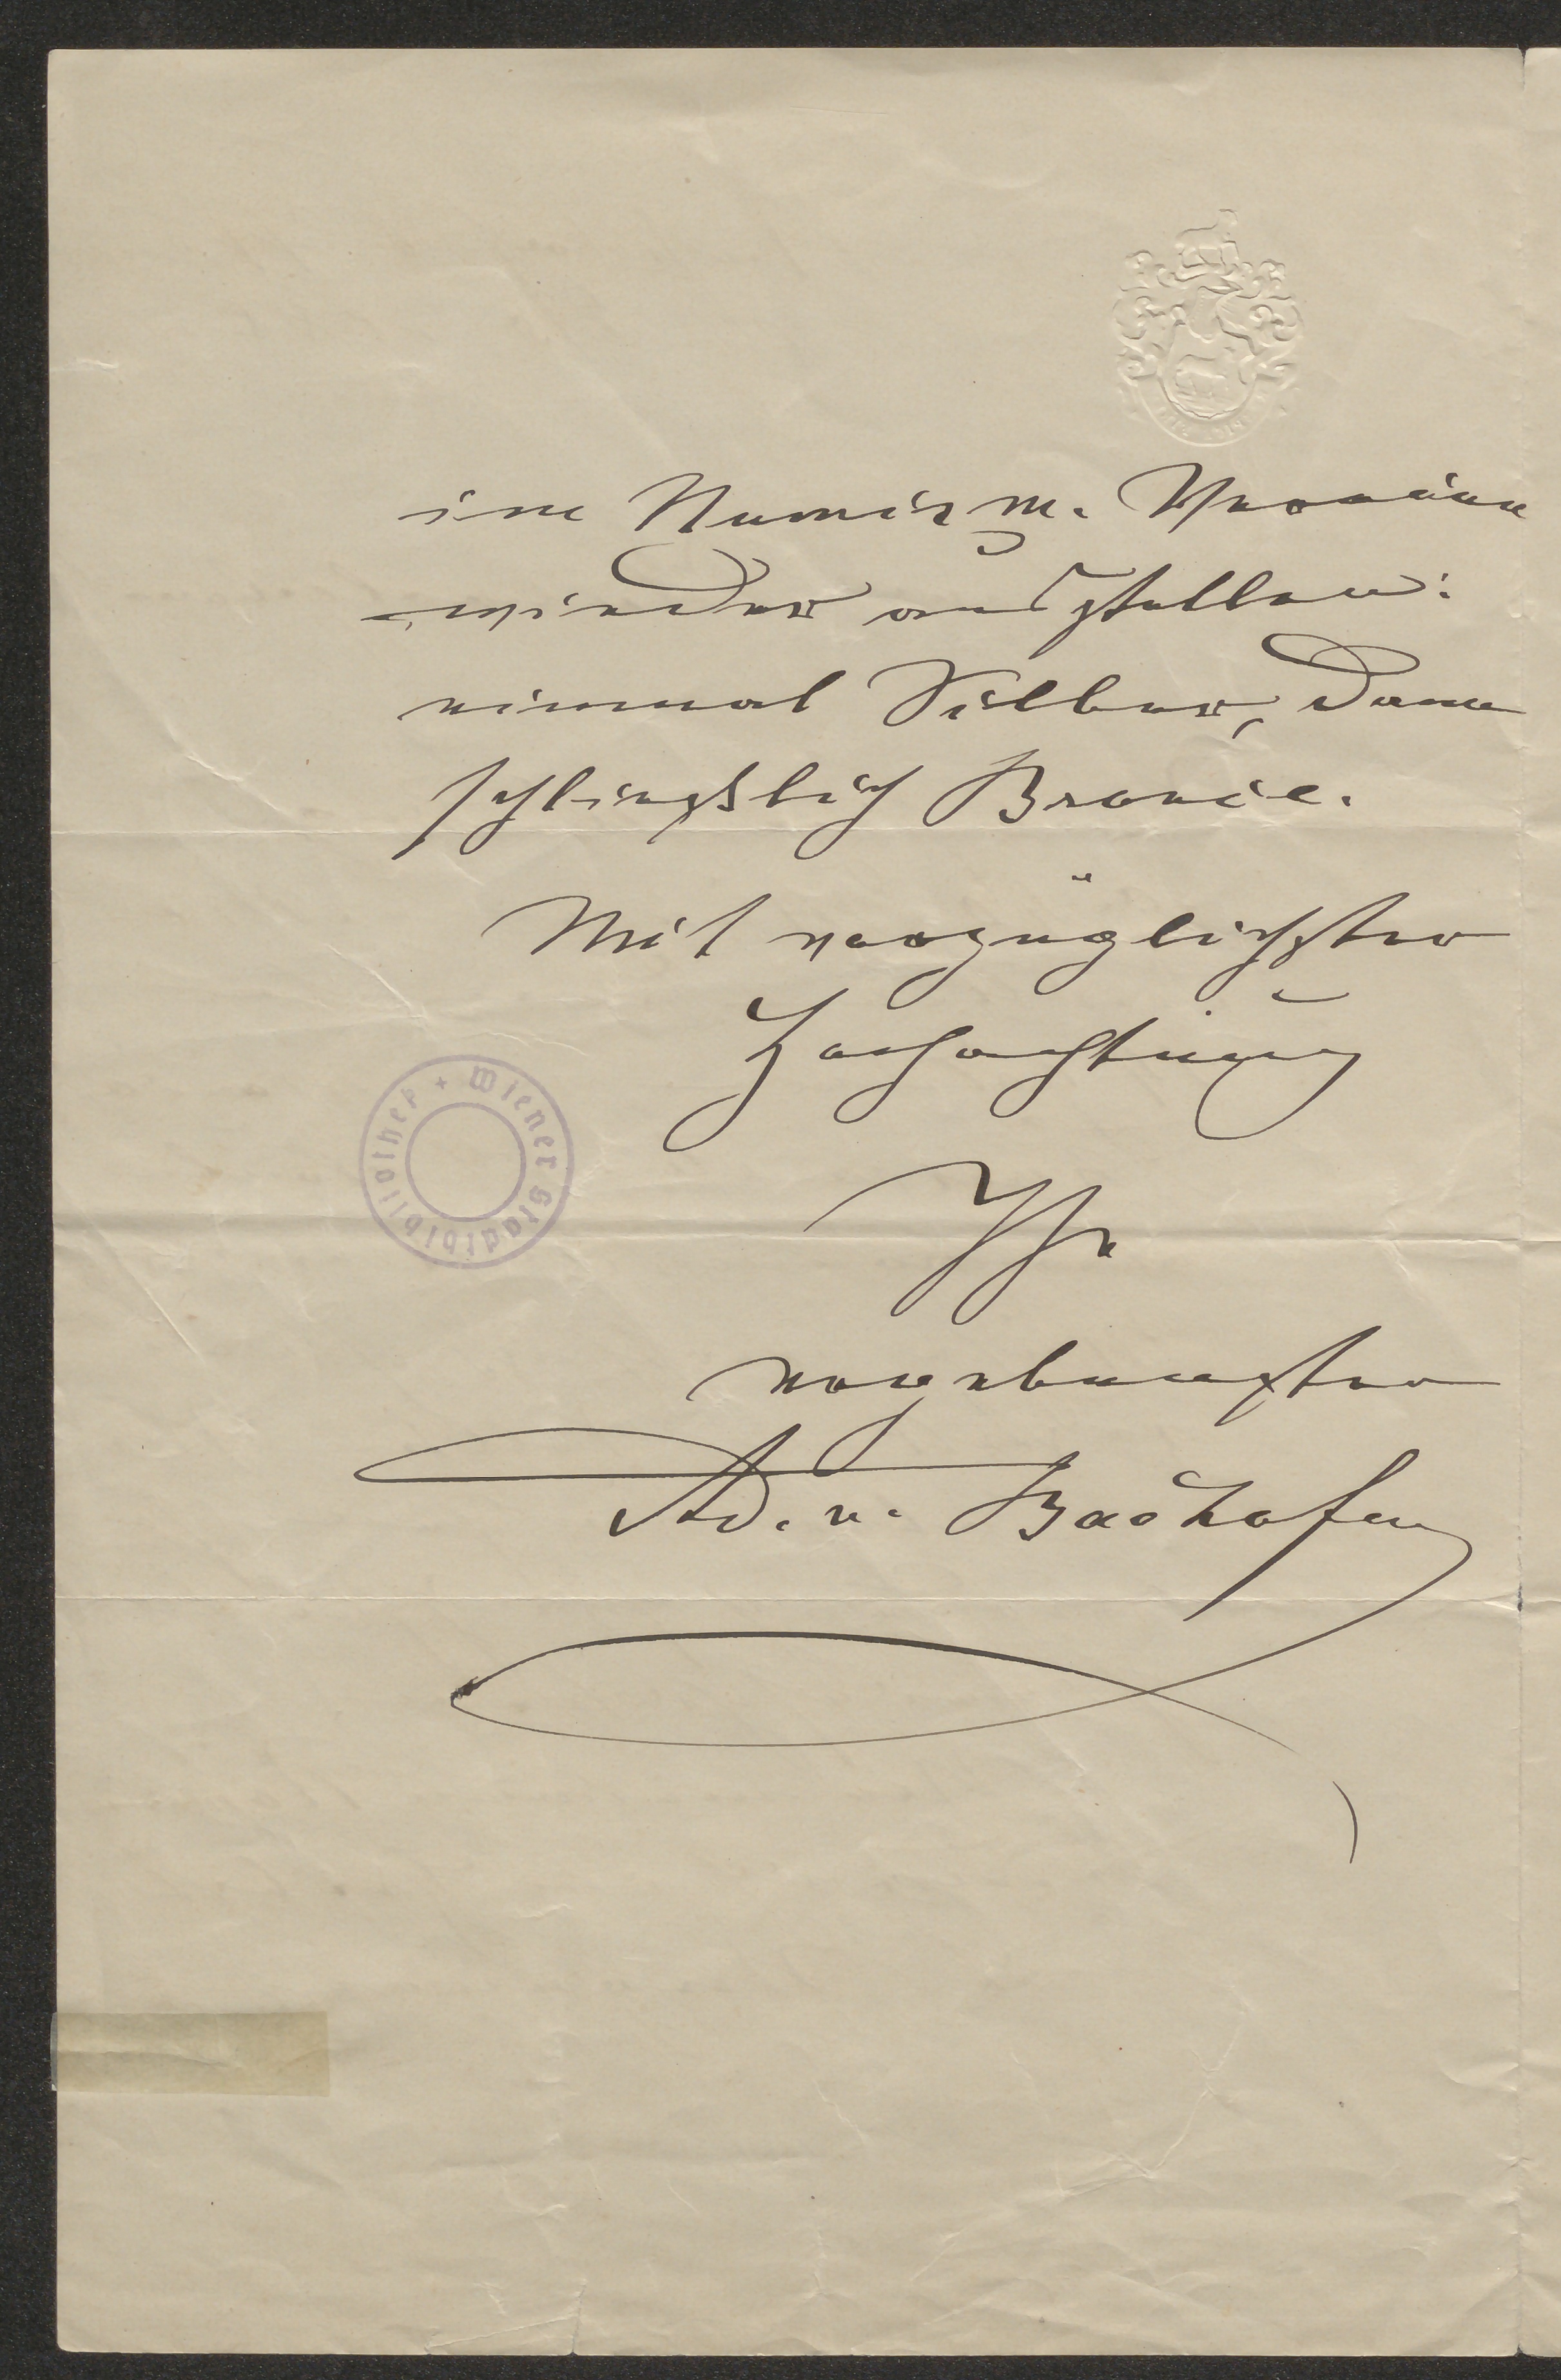 im Numism. Verein
wieder ausstellen:
einmal Silber, dann
schließlich Bronce.
Mit vorzüglichster
Hochachtung
Ihr
ergebenster
Ad. v. Bachofen
Wiener Stadtbibliothek +